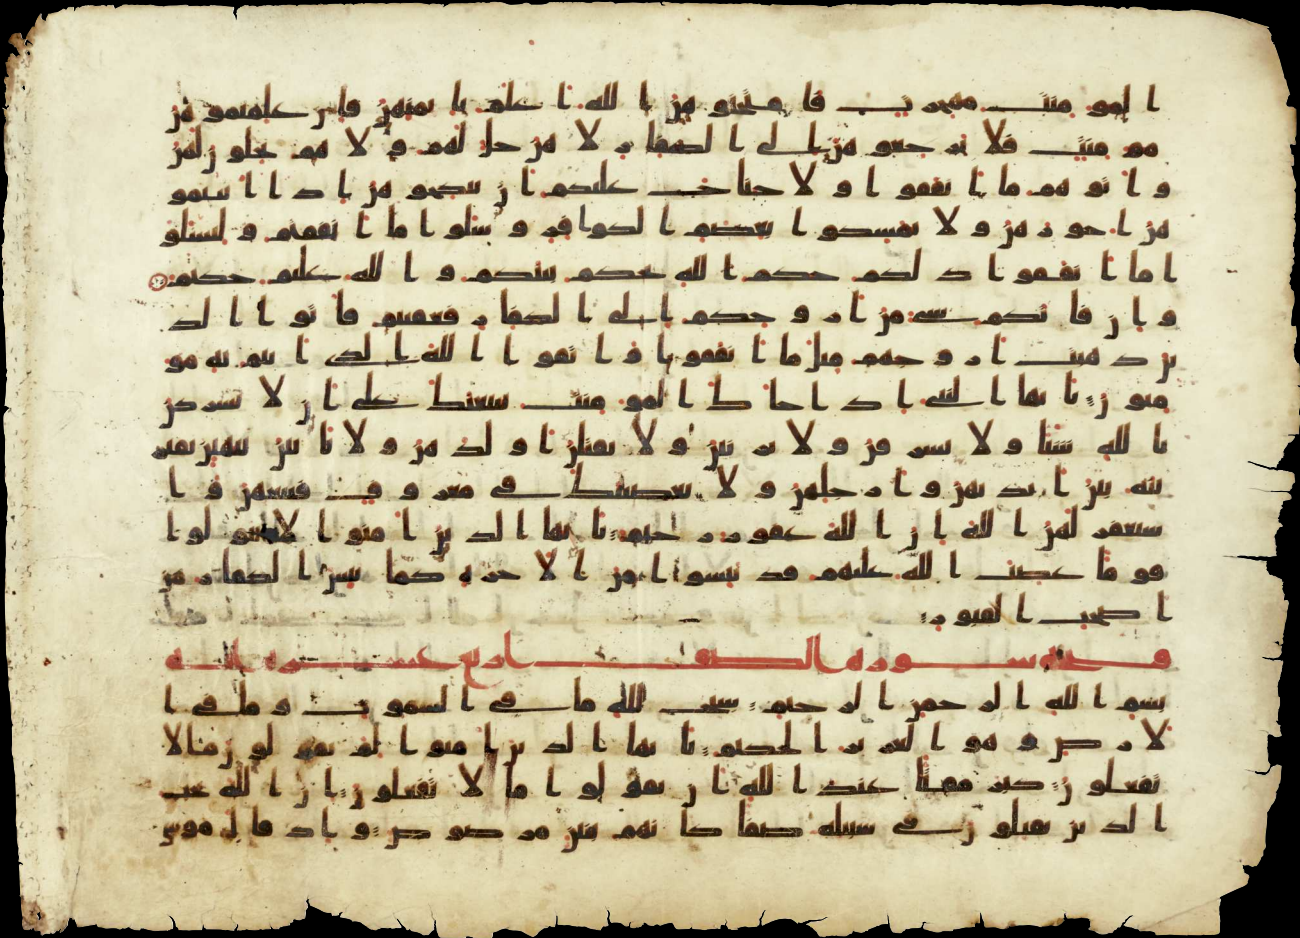 المومنت مهجرت فامتحنوهن الله اعلم بايمنهن فان علمتموهن
مومنت فلا ترجعوهن الى الكفار لا هن حل لهم ولا هم يحلون لهن
واتوهم ما انفقوا ولا جناح عليكم ان تنكحوهن اذا اتيتمو
هن اجورهن ولا تمسكوا بعصم الكوافر وسلوا ما انفقتم وليسلو
ا ما انفقوا ذلكم حكم الله يحكم بينكم والله عليم حكيم
وان فاتكم شي من ازوجكم الى الكفار فعقبتم فاتوا الذ
ين ذهبت ازوجهم مثل ما انفقوا واتقوا الله الذي انتم به مو
منون يايها النبي اذا جاك المومنت يبايعنك على ان لا يشركن
بالله شيا ولا يسرقن ولا يزنين ولا يقتلن اولدهن ولا ياتين ببهتن يفتر
ينه بين ايديهن وارجلهن ولا يعصينك في معروف فبايعهن وا
ستغفر لهن الله ان الله غفور رحيم يايها الذين امنوا لا تتولوا
قوما غضب الله عليهم قد يئسوا من الاخرة كما يئس الكفار من
اصحب القبور
فتحه سوره الصف اربع عشره ايه
بسم الله الرحمن الرحيم سبح لله ما في السموت وما في ا
لارض وهو العزيز الحكيم يايها الذين امنوا لم تقولون ما لا
تفعلون كبر مقتا عند الله ان تقولوا ما لا تفعلون ان الله يحب
الذين يقتلون في سبيله صفا كانهم بنين مرصوص واذ قال موسى